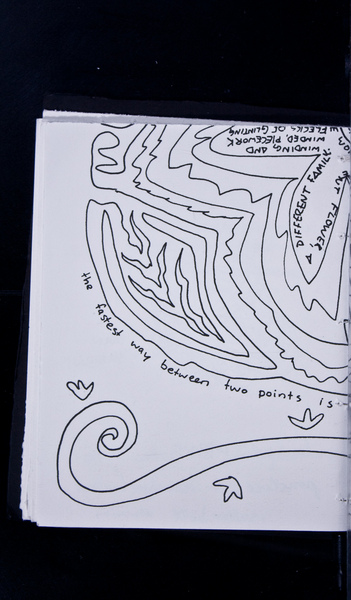 WINDING, AND
WINDED, PIECEWORK
FLECKS OF GLINTING
A DIFFERENT FAMILY:
FLOWER
the fastest way between two points is